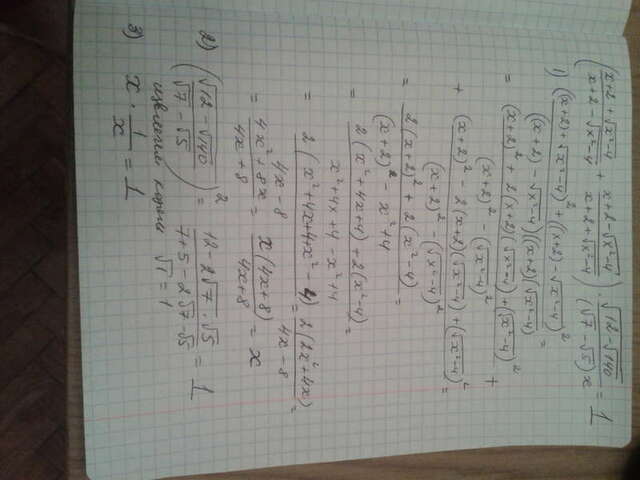 ((x+2+√(x²-4))/(x+2-√(x²-4)) + (x+2-√(x²-4))/(x+2+√(x²-4))) · √(12-√140)/((√7-√5)x) = 1
1) ((x+2)+√(x²-4))²+((x+2)-√(x²-4))²/((x+2)-√(x²-4))((x+2)(√(x²-4)) =
= ((x+2)²+2(x+2)(√(x²-4))+(√(x²-4))²)/((x+2)²-(√(x²-4))²) +
+ ((x+2)²-2(x+2)(√(x²-4))+(√(x²-4))²)/((x+2)²-(√(x²-4))²) =
= (2(x+2)²+2(x²-4))/((x+2)²-x²+4) =
= (2(x²+4x+4)+2(x²-4))/(x²+4x+4-x²+4) =
= 2(x²+4x+4+x²-4)/(4x-8) = 2(2x²+4x)/(4x-8) =
= (4x²+8x)/(4x+8) = x(4x+8)/(4x+8) = x
2) (√(12-√140)/(√7-√5))² = (12-2√7·√5)/(7+5-2√7·√5) = 1
извлекаем корень √1 = 1
3) x · 1/x = 1